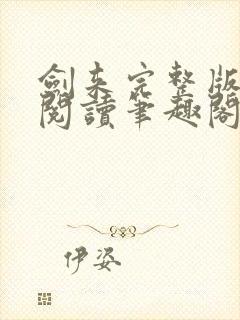 劍来完整版
閱讀筆趣閣
伊姿